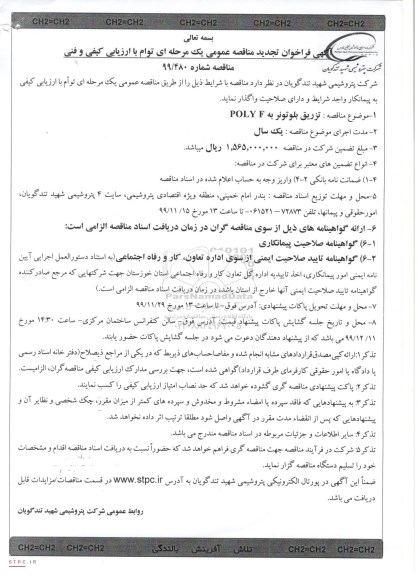 CH2=CH2 CH2=CH2 CH2=CH2 CH2=CH2 CH2=CH2
بسمه تعالی
آگهی فراخوان تجدید مناقصه عمومی یک مرحله ای توام با ارزیابی کیفی و فنی
مناقصه شماره ۹۹/۴۸۰
شرکت پتروشیمی شهید تندگویان
شرکت پتروشیمی شهید تندگویان در نظر دارد مناقصه با شرایط ذیل را از طریق مناقصه عمومی یک مرحله ای توأم با ارزیابی کیفی
به پیمانکار واجد شرایط و دارای صلاحیت واگذار نماید.
۱-موضوع مناقصه : تزریق بلوتونر به POLY F
۲- مدت اجرای موضوع مناقصه : یک سال
۳- مبلغ تضمین شرکت در مناقصه ۱,۵۶۵,۰۰۰,۰۰۰ ریال میباشد.
۴- انواع تضمین های معتبر برای شرکت در مناقصه:
۴-۱) ضمانت نامه بانکی ۴-۲) واریز وجه به حساب اعلام شده در اسناد مناقصه
۵-محل و مهلت توزیع اسناد مناقصه : بندر امام خمینی، منطقه ویژه اقتصادی پتروشیمی، سایت ۴ پتروشیمی شهید تندگویان،
امورحقوقی و پیمانها، تلفن ۷۲۸۷۳-۰۶۱۵۲۱ تا ساعت ۱۳ مورخ ۹۹/۱۱/۱۵
۶- ارائه گواهینامه های ذیل از سوی مناقصه گران در زمان دریافت اسناد مناقصه الزامی است:
۶-۱) گواهینامه صلاحیت پیمانکاری
۶-۲) گواهینامه تایید صلاحیت ایمنی از سوی اداره تعاون، کار و رفاه اجتماعی(به استناد دستورالعمل اجرایی آیین
نامه ایمنی امور پیمانکاری، اخذ تاییدیه اداره کل تعاون کار و رفاه اجتماعی استان خوزستان جهت شرکتهایی که مرجع صادرکننده
گواهینامه تایید صلاحیت ایمنی آنها خارج از استان باشد، در زمان دریافت اسناد مناقصه الزامی است.)
۷- محل و مهلت تحویل پاکات پیشنهادی: آدرس فوق- تا ساعت ۱۳ مورخ ۹۹/۱۱/۲۹
۸- محل و تاریخ جلسه گشایش پاکات پیشنهاد قیمت: آدرس فوق- سالن کنفرانس ساختمان مرکزی- ساعت ۱۴:۳۰ مورخ
۹۹/۱۲/۱۱ می باشد که از پیشنهاد دهندگان دعوت می شود در جلسه گشایش پاکات حضور یابند.
تذکر۱:ارائه کپی‌مصدق‌قراردادهای مشابه انجام شده و مفاصاحسابهای ذیربط که در یکی از مراجع ذیصلاح(دفترخانه اسناد رسمی
یا دادگاه یا امور حقوقی کارفرمای طرف قرارداد)گواهی شده است، جهت بررسی مدارک ارزیابی کیفی مناقصه‌گران، الزامیست.
تذکر۲: پاکت پیشنهادی مناقصه گری گشوده خواهد شد که حد نصاب امتیاز ارزیابی کیفی را کسب نمایند.
تذکر۳: به پیشنهادهایی که فاقد سپرده یا امضاء مشروط و مخدوش و سپرده های کمتر از میزان مقرر، چک شخصی و نظایر آن و
پیشنهادهایی که پس از انقضاء مدت مقرر در آگهی واصل شود مطلقا ترتیب اثر داده نخواهد شد.
تذکر۴: سایر اطلاعات و جزئیات مربوطه در اسناد مناقصه مندرج می باشد.
تذکر۵: شرکت در فرآیند مناقصه جهت مناقصه گری فراهم خواهد شد که حضوراً نسبت به دریافت اسناد مناقصه اقدام و مشخصات
خود را تسلیم دستگاه مناقصه گزار نماید.
ضمناً این آگهی در پورتال الکترونیکی پتروشیمی شهید تندگویان به آدرس www.stpc.ir در قسمت مناقصات/مزایدات قابل
دریافت می باشد.
روابط عمومی شرکت پتروشیمی شهید تندگویان
CH2=CH2 CH2=CH2 تلاش آفرینش بالندگی CH2=CH2 CH2=CH2
STPC.IR